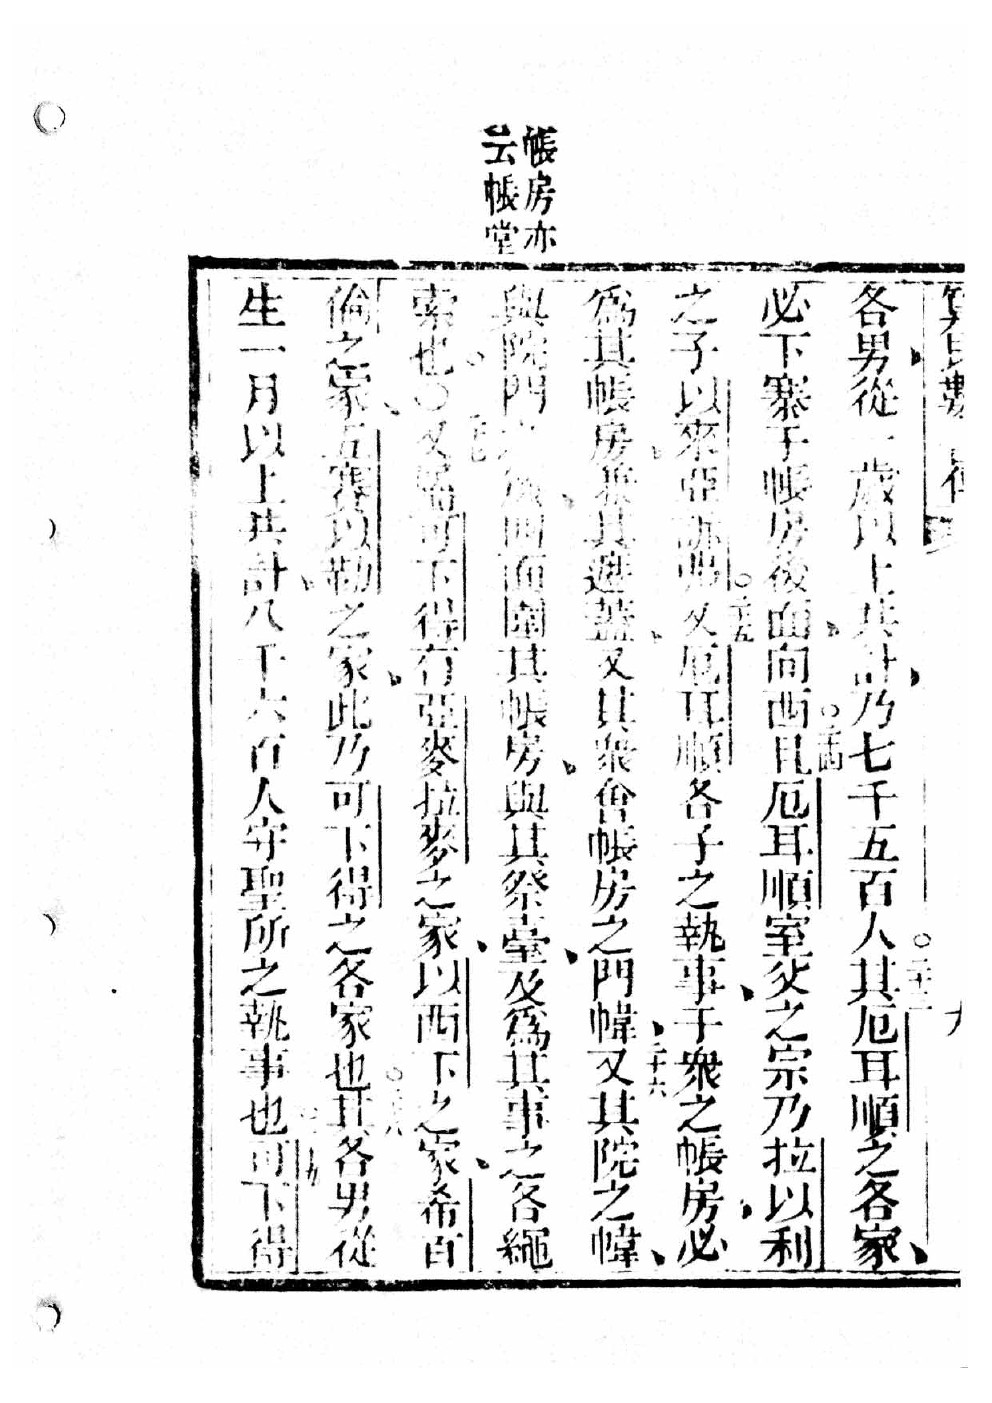 帳房亦
云帳堂
數
九
各男從一歲以上共計乃七千五百人其○二十三厄耳順之各家
必下寨于帳房後面向西且○二十四厄耳順室父之宗乃拉以利
之子以來亞疏弗又○二十五厄耳順各子之執事于衆之帳房必
爲其帳房兼其遮蓋又其衆會帳房之門幃二十六又其院之幃
與院門之幃四面圍其帳房與其祭臺及爲其事之各繩
索也○又屬可下得有亞麥拉麥之家以西下之家希百
倫之家五賽以勒之家此乃可下得之各家也○二十八其各男從
生一月以上共計八千六百人守聖所之執事也可下得